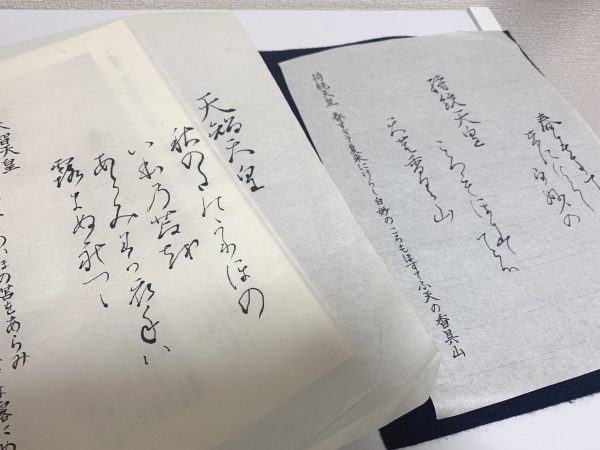 春すきて
夏にけらし
白妙の
ころもほすてふ
持統天皇
天の香具山
持統天皇 春すぎて夏来にけらし白妙のころもほすてふ天の香具山
天智天皇
秋の田のかりほの
いほ乃苫越
あらみわか衣手ハ
露にぬれつゝ
天智天皇
いほの苫をあらみ